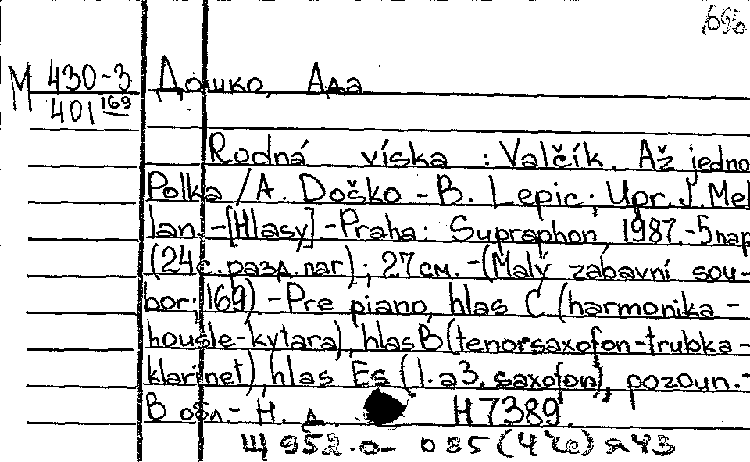 М 430-3
401 169
Дошко, Ада
Rodná víska : Valčík. Až jedno
Polka / A. Doško - B. Lepic; Upr. J. Mel
lan. - [Hlasy]. - Praha: Supraphon, 1987. - 5 пар
(24 с. разд. паг); 27 см. - (Malý zábavní sou-
bor; 169) - Pre piano, hlas C (harmonika -
housle - kytara), hlas B (tenorsaxofon - trubka -
klarinet), hlas Es (1. a 3. saxofon), pozoun. -
В обл. - Н. д. Н 7389.
Щ 952.0-